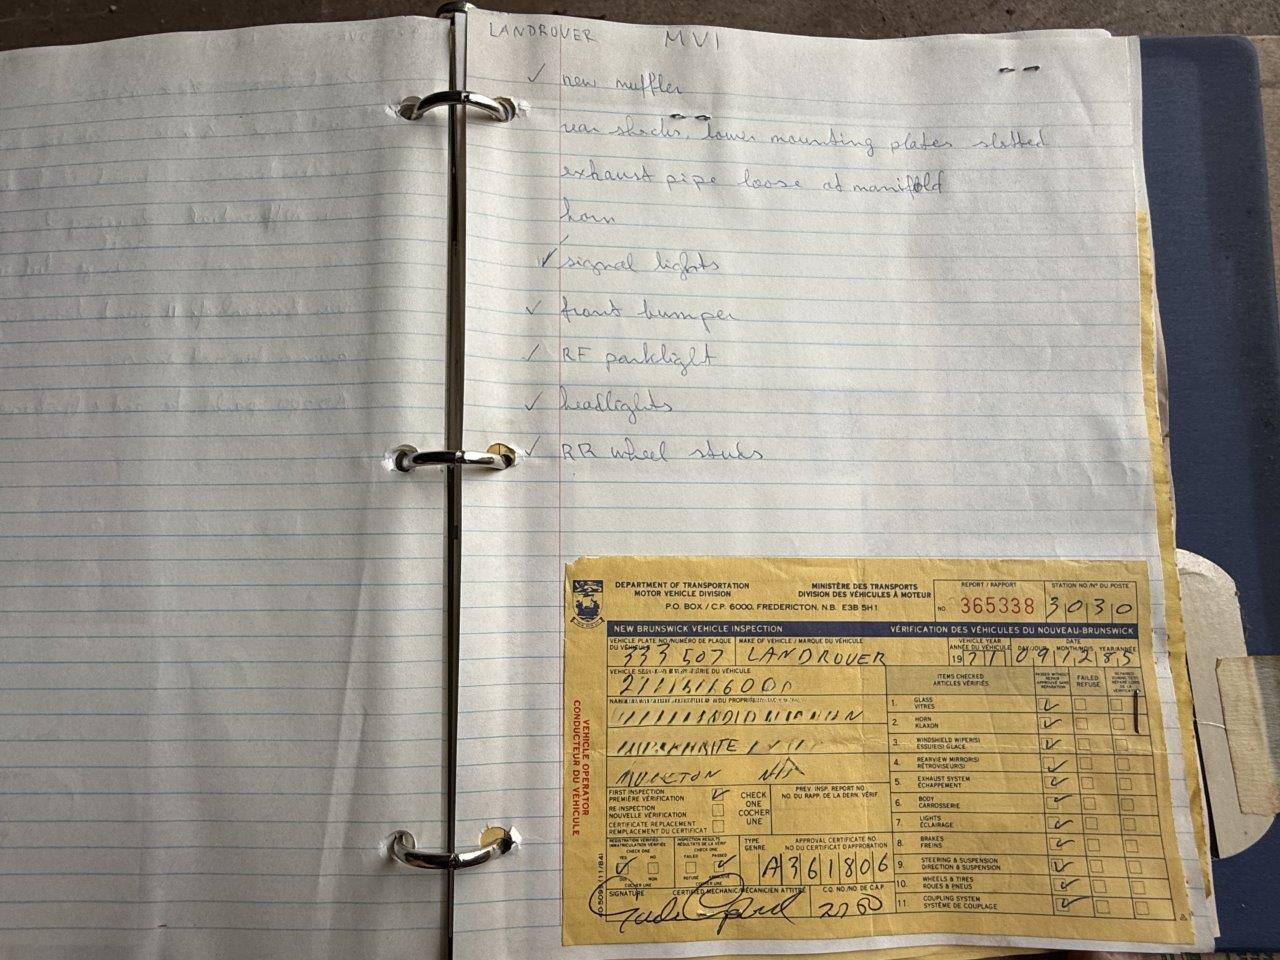 LANDROVER MVI
✓ new muffler
rear shocks, lower mounting plates slotted
exhaust pipe loose at manifold
horn
✓ signal lights
✓ front bumper
✓ RF parklight
✓ headlights
✓ RR wheel studs
DEPARTMENT OF TRANSPORTATION
MOTOR VEHICLE DIVISION
MINISTÈRE DES TRANSPORTS
DIVISION DES VÉHICULES À MOTEUR
P.O. BOX / C.P. 6000, FREDERICTON, N.B. E3B 5H1
REPORT / RAPPORT
NO. 365338
STATION NO./NO DU POSTE
3030
NEW BRUNSWICK VEHICLE INSPECTION
VÉRIFICATION DES VÉHICULES DU NOUVEAU-BRUNSWICK
VEHICLE PLATE NO/NUMÉRO DE PLAQUE DU VÉHICULE
333 507
MAKE OF VEHICLE / MARQUE DU VÉHICULE
LANDROVER
VEHICLE YEAR
ANNÉE DU VÉHICULE
1971
DATE
DAY/JOUR MONTH/MOIS YEAR/ANNÉE
09 12 85
VEHICLE DU VÉHICULE
DU PROPRIÉTAIRE
N/A
FIRST INSPECTION
PREMIÈRE VÉRIFICATION ✓
RE-INSPECTION
NOUVELLE VÉRIFICATION
CERTIFICATE REPLACEMENT
REMPLACEMENT DU CERTIFICAT
CHECK
ONE
COCHER
UNE
PREV. INSP. REPORT NO.
NO DU RAPP. DE LA DERN. VÉRIF.
REGISTRATION VERIFIED
IMMATRICULATION VÉRIFIÉE
CHECK ONE
YES NO
✓
OUI NON
COCHER UNE
INSPECTION RESULTS
RÉSULTATS DE LA VÉRIF.
CHECK ONE
FAILED PASSED
✓
REFUSÉ
COCHER UNE
TYPE
GENRE
APPROVAL CERTIFICATE NO.
NO DU CERTIFICAT D'APPROBATION
A361806
SIGNATURE
CERTIFIED MECHANIC/MÉCANICIEN ATTITRÉ
C.Q. NO./NO. DE C.A.P.
ITEMS CHECKED
ARTICLES VÉRIFIÉS
PASSED WITHOUT REPAIR
FAILED
REFUSÉ
1. GLASS
VITRES ✓
2. HORN
KLAXON ✓
3. WINDSHIELD WIPER(S)
ESSUIE(S) GLACE ✓
4. REARVIEW MIRROR(S)
RÉTROVISEUR(S) ✓
5. EXHAUST SYSTEM
ÉCHAPPEMENT ✓
6. BODY
CARROSSERIE ✓
7. LIGHTS
ÉCLAIRAGE ✓
8. BRAKES
FREINS ✓
9. STEERING & SUSPENSION
DIRECTION & SUSPENSION ✓
10. WHEELS & TIRES
ROUES & PNEUS ✓
11. COUPLING SYSTEM
SYSTÈME DE COUPLAGE ✓
VEHICLE OPERATOR
CONDUCTEUR DU VÉHICULE